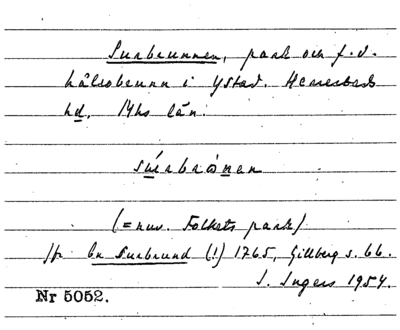 Surbrunnen, park och f.d.
hälsobrunn i Ystad. Herrestads
hd. Mhs län.
súrbrònen
(= nuv. Folkets park)
Jfr en Surbrund (!) 1765, Gillberg s. 66.
I. Ingers 1954.
Nr 5052.